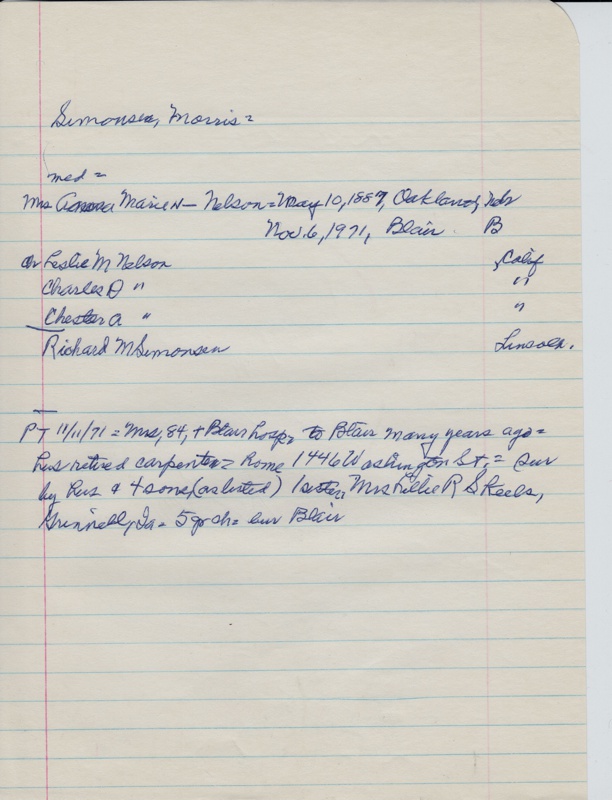 Simonsen, Morris =
med =
Mrs Marie N - Nelson = May 10, 1887, Oakland, Nebr
Nov. 6, 1971, Blair. B
ch Leslie M Nelson , Calif
Charles D " "
Chester A " "
Richard M Simonsen Lincoln.
PT 11/11/71 = Mrs, 84, + Blair hosp, to Blair many years ago =
hus retired carpenter = home 1446 Washington St, = sur
by hus & 4 sons (as listed) 1 sister, Mrs Lillie R Skeels,
Grinnell, Ia = 5 gr ch = bur Blair